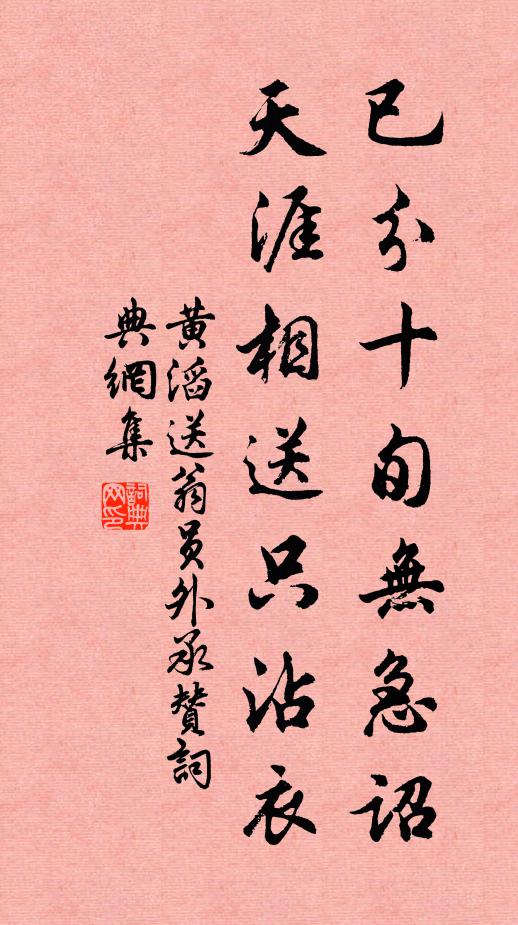 已分十旬無急詔
天涯相送只沾衣
黃滔送翁員外承贊詞
典網集
詞典
网印